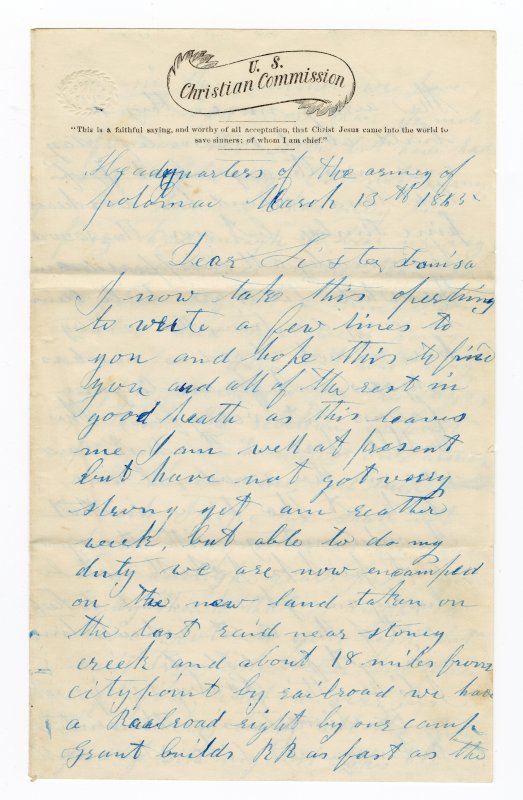 U. S.
Christian Commission
"This is a faithful saying, and worthy of all acceptation, that Christ Jesus came into the world to
save sinners; of whom I am chief."
Headquarters of the army of
potomac March 13th 1865
Dear Sister Louisa
I now take this opertuny
to write a few lines to
you and hope this to find
you and all of the rest in
good heath as this leaves
me I am well at present
but have not got verry
strong yet am reather
week, but able to do my
duty we are now encamped
on the new land taken on
the last raid near stoney
creek and about 18 miles from
citypoint by railroad we have
a Raalroad right by our camp
Grant builds RR as fast as the